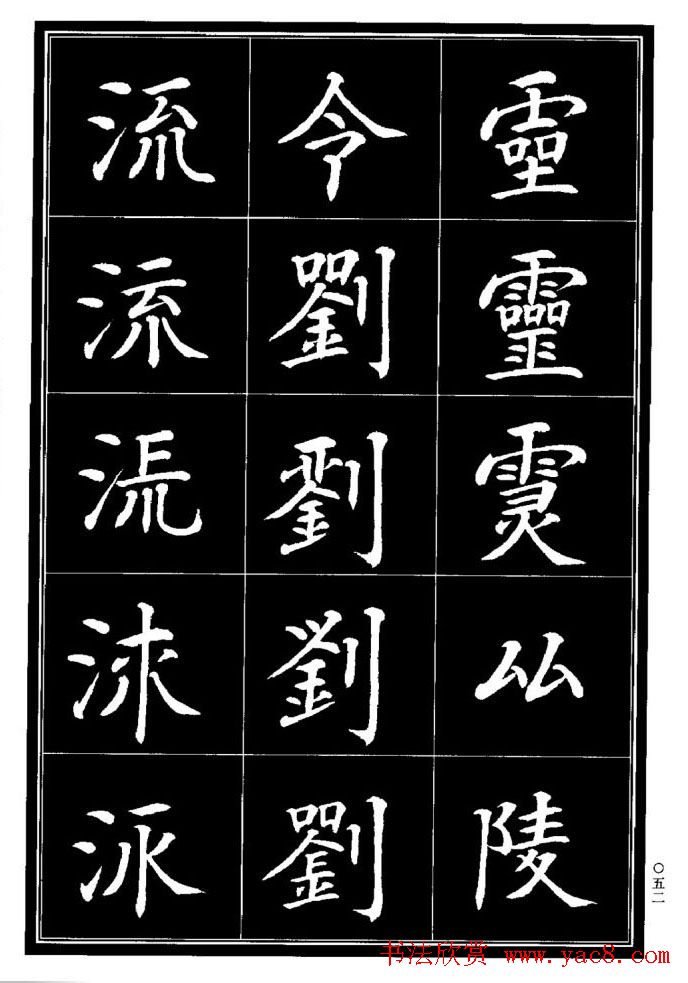 靈靈靈厸陵
令劉劉劉劉
流流流
〇五二
书法欣赏 www.yac8.com